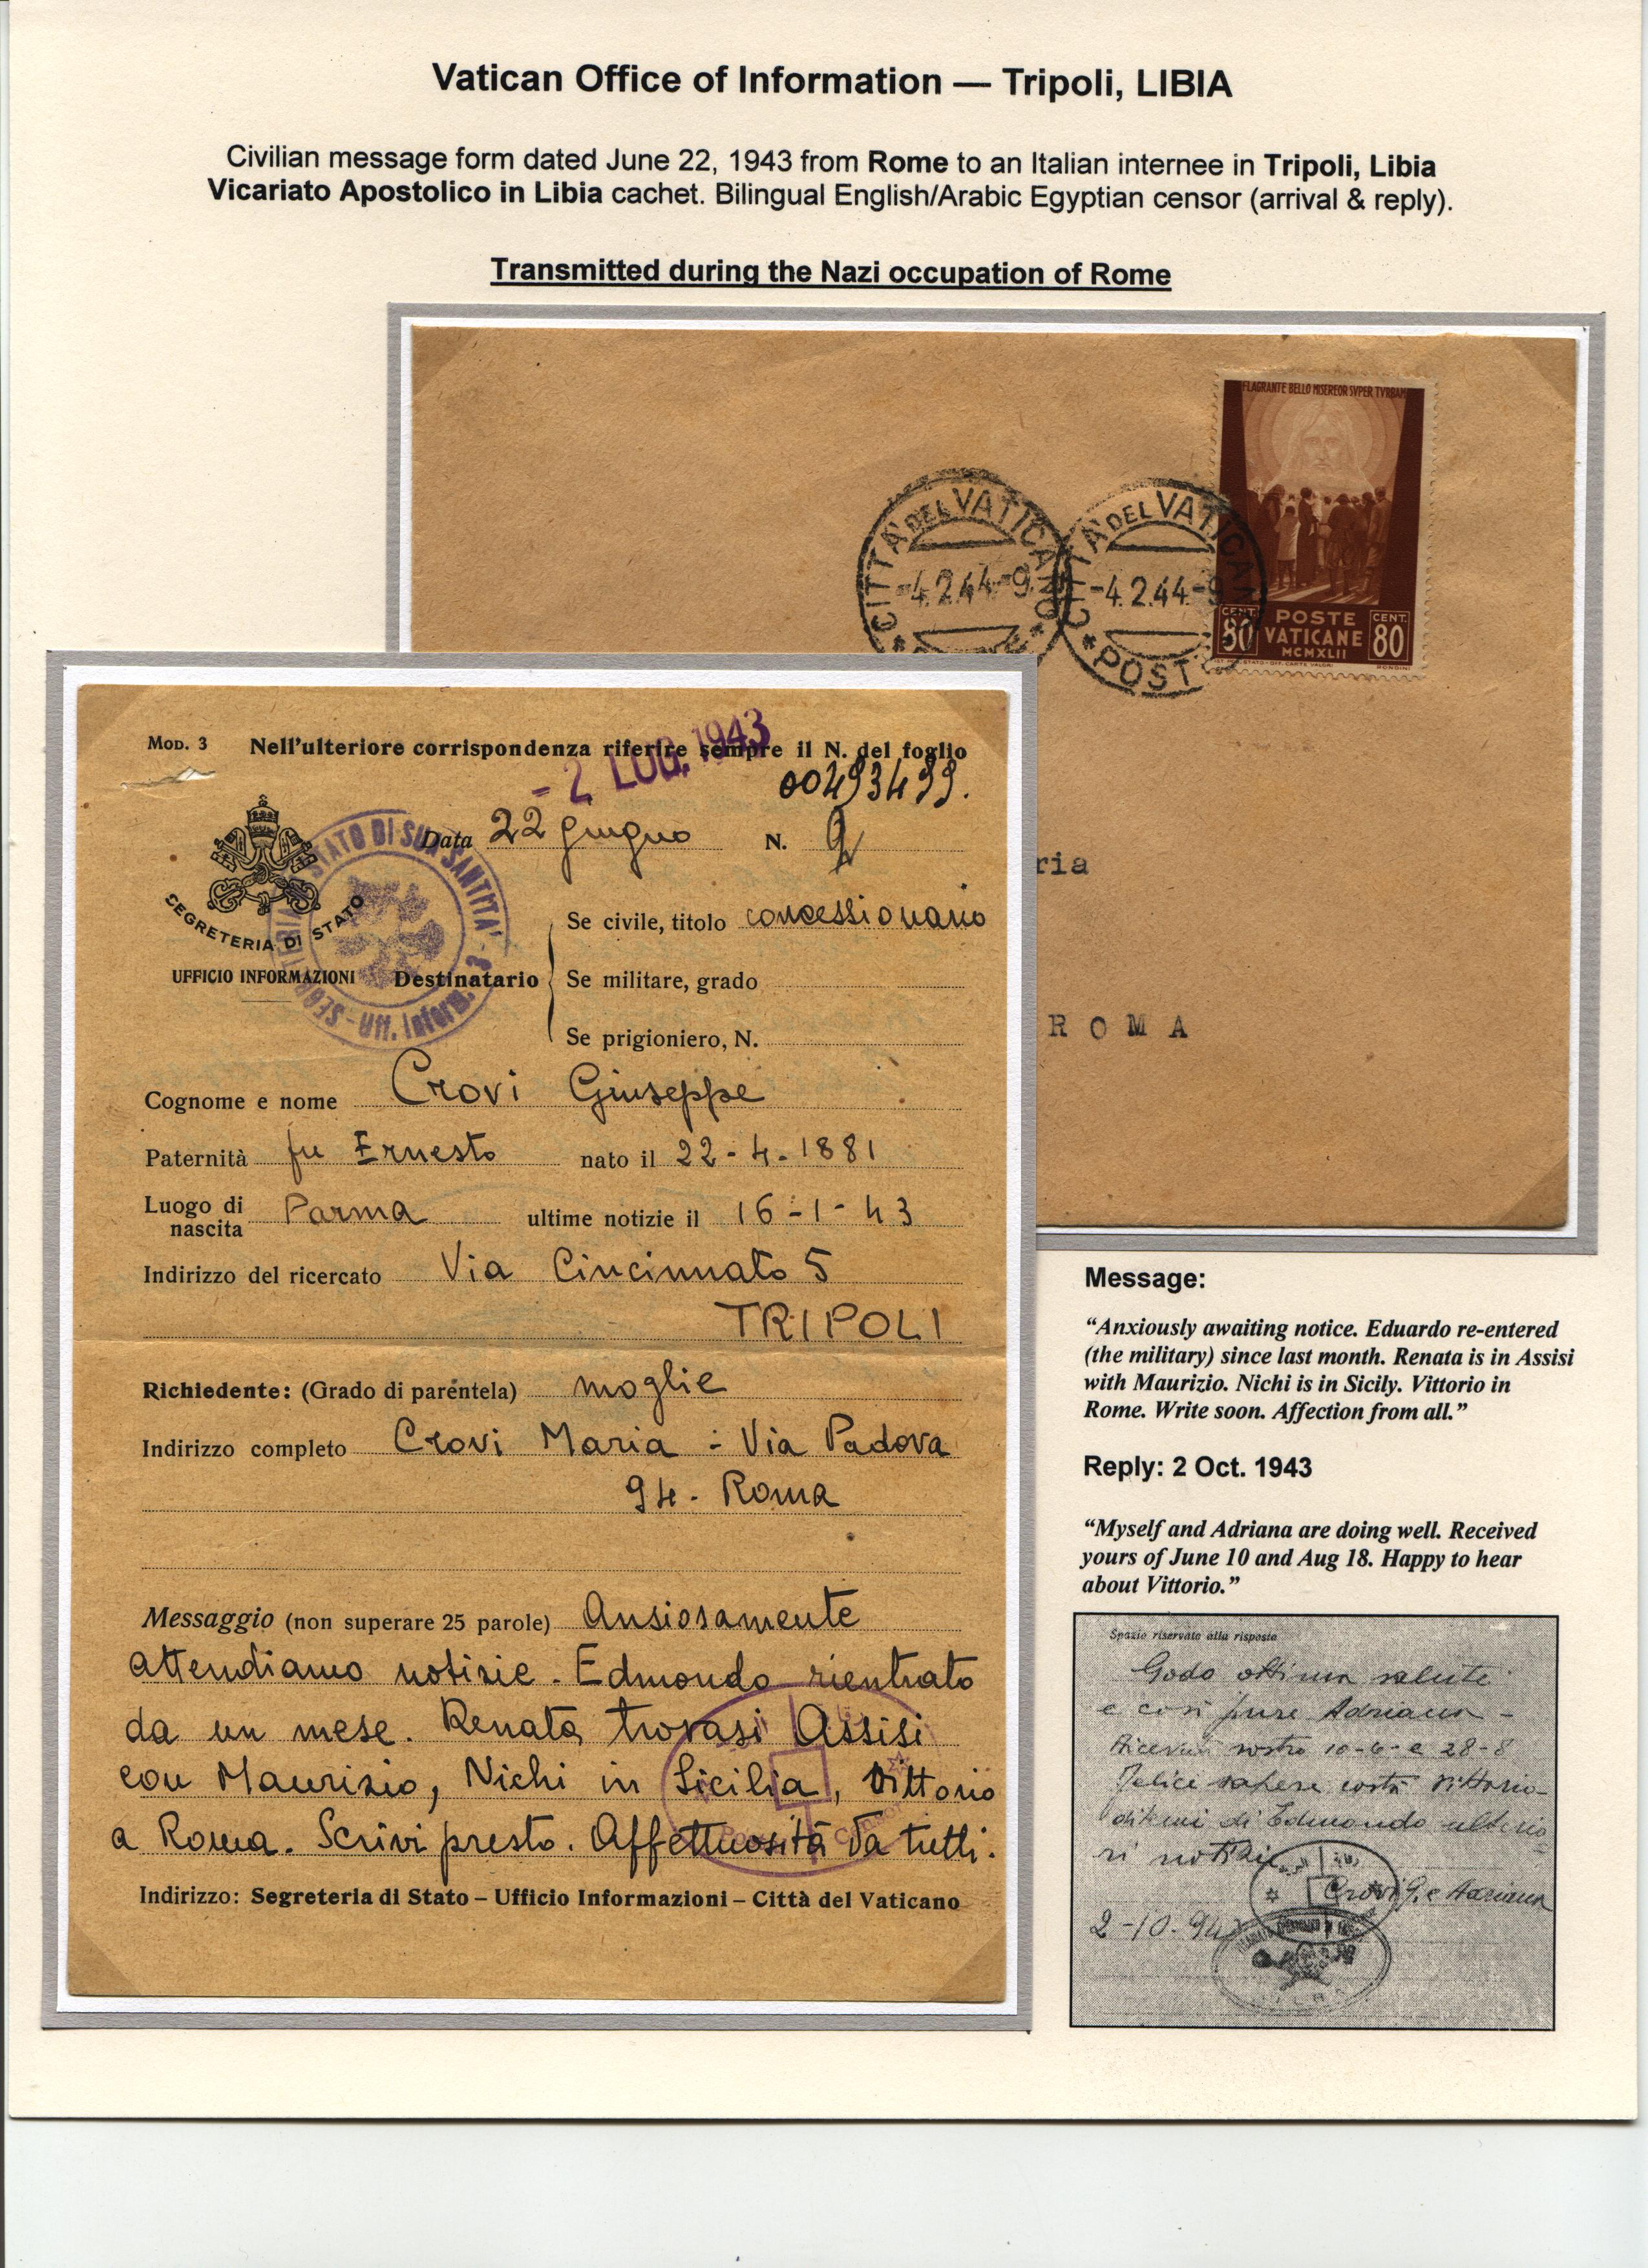 Vatican Office of Information — Tripoli, LIBIA
Civilian message form dated June 22, 1943 from Rome to an Italian internee in Tripoli, Libia
Vicariato Apostolico in Libia cachet. Bilingual English/Arabic Egyptian censor (arrival & reply).
Transmitted during the Nazi occupation of Rome
FLAGRANTE BELLO MISEREOR SVPER TVRBAM
CITTA' DEL VATICANO
-4.2.44-9
CITTA' DEL VATICANO
-4.2.44-9
POSTE
CENT. 80
POSTE VATICANE
MCMXLII
CENT. 80
ria
ROMA
Mod. 3 Nell'ulteriore corrispondenza riferire sempre il N. del foglio
- 2 LUG. 1943
00493499.
Data 22 giugno N. 2
SEGRETERIA DI STATO
UFFICIO INFORMAZIONI
STATO DI SUA SANTITA' - Uff. Inform.
Destinatario
Se civile, titolo concessionario
Se militare, grado
Se prigioniero, N.
Cognome e nome Crovi Giuseppe
Paternità fu Ernesto nato il 22-4-1881
Luogo di nascita Parma ultime notizie il 16-1-43
Indirizzo del ricercato Via Cincinnato 5
TRIPOLI
Richiedente: (Grado di parentela) moglie
Indirizzo completo Crovi Maria - Via Padova
94 - Roma
Messaggio (non superare 25 parole) Ansiosamente
attendiamo notizie. Edmondo rientrato
da un mese. Renata trovasi Assisi
con Maurizio, Nichi in Sicilia, Vittorio
a Roma. Scrivi presto. Affettuosità da tutti.
Indirizzo: Segreteria di Stato – Ufficio Informazioni – Città del Vaticano
Message:
“Anxiously awaiting notice. Eduardo re-entered
(the military) since last month. Renata is in Assisi
with Maurizio. Nichi is in Sicily. Vittorio in
Rome. Write soon. Affection from all.”
Reply: 2 Oct. 1943
“Myself and Adriana are doing well. Received
yours of June 10 and Aug 18. Happy to hear
about Vittorio.”
Spazio riservato alla risposta
Godo ottima salute
e così pure Adriana -
Ricevuti vostro 10-6- e 28-8
Felici sapere costà Vittorio -
ditemi di Edmondo ulterio
ri notizie
Crovi G. e Adriana
2-10-943